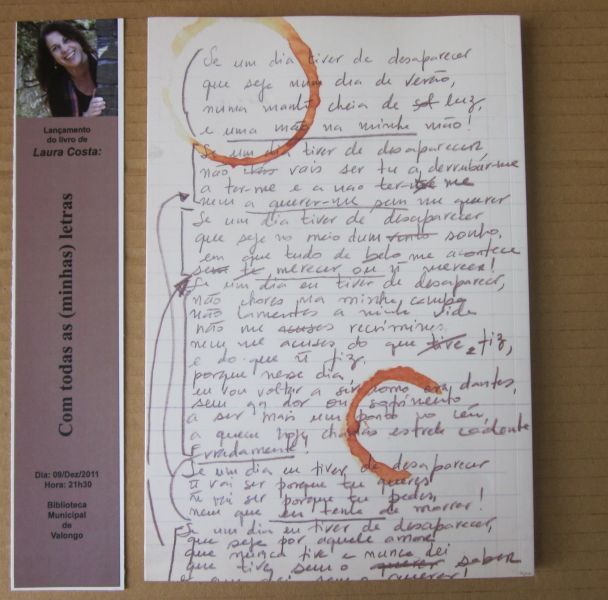 Lançamento
do livro de
Laura Costa:
Com todas as (minhas) letras
Dia: 09/Dez/2011
Hora: 21h30
Biblioteca
Municipal
de
Valongo
Se um dia tiver de desaparecer
que seja num dia de verão,
numa manhã cheia de sol luz,
e uma mão na minha mão!
Se um dia tiver de desaparecer,
não vais ser tu a derrubar-me
a ter-me e a não ter-me
nem a querer-me sem me querer
Se um dia tiver de desaparecer
que seja no meio dum sonho,
em que tudo de belo me acontece
sem te merecer, ou ñ merecer!
Se um dia eu tiver de desaparecer,
não chores na minha campa
não lamentes a minha vida
não me acuses recrimines
nem me acuses do que tive fiz,
e do que ñ fiz,
porque nesse dia,
eu vou voltar a ser como era dantes,
sem a dor ou sofrimento
a ser mais um ponto no céu,
a quem hoje chamas estrela cadente
Erradamente.
Se um dia eu tiver de desaparecer
ñ vai ser porque tu queres
ñ vai ser porque tu pedes,
nem que eu tenha de morrer!
Se um dia eu tiver de desaparecer,
que seja por aquele amor
que nunca tive e nunca dei
que tive sem o querer saber
e que dei sem o querer!